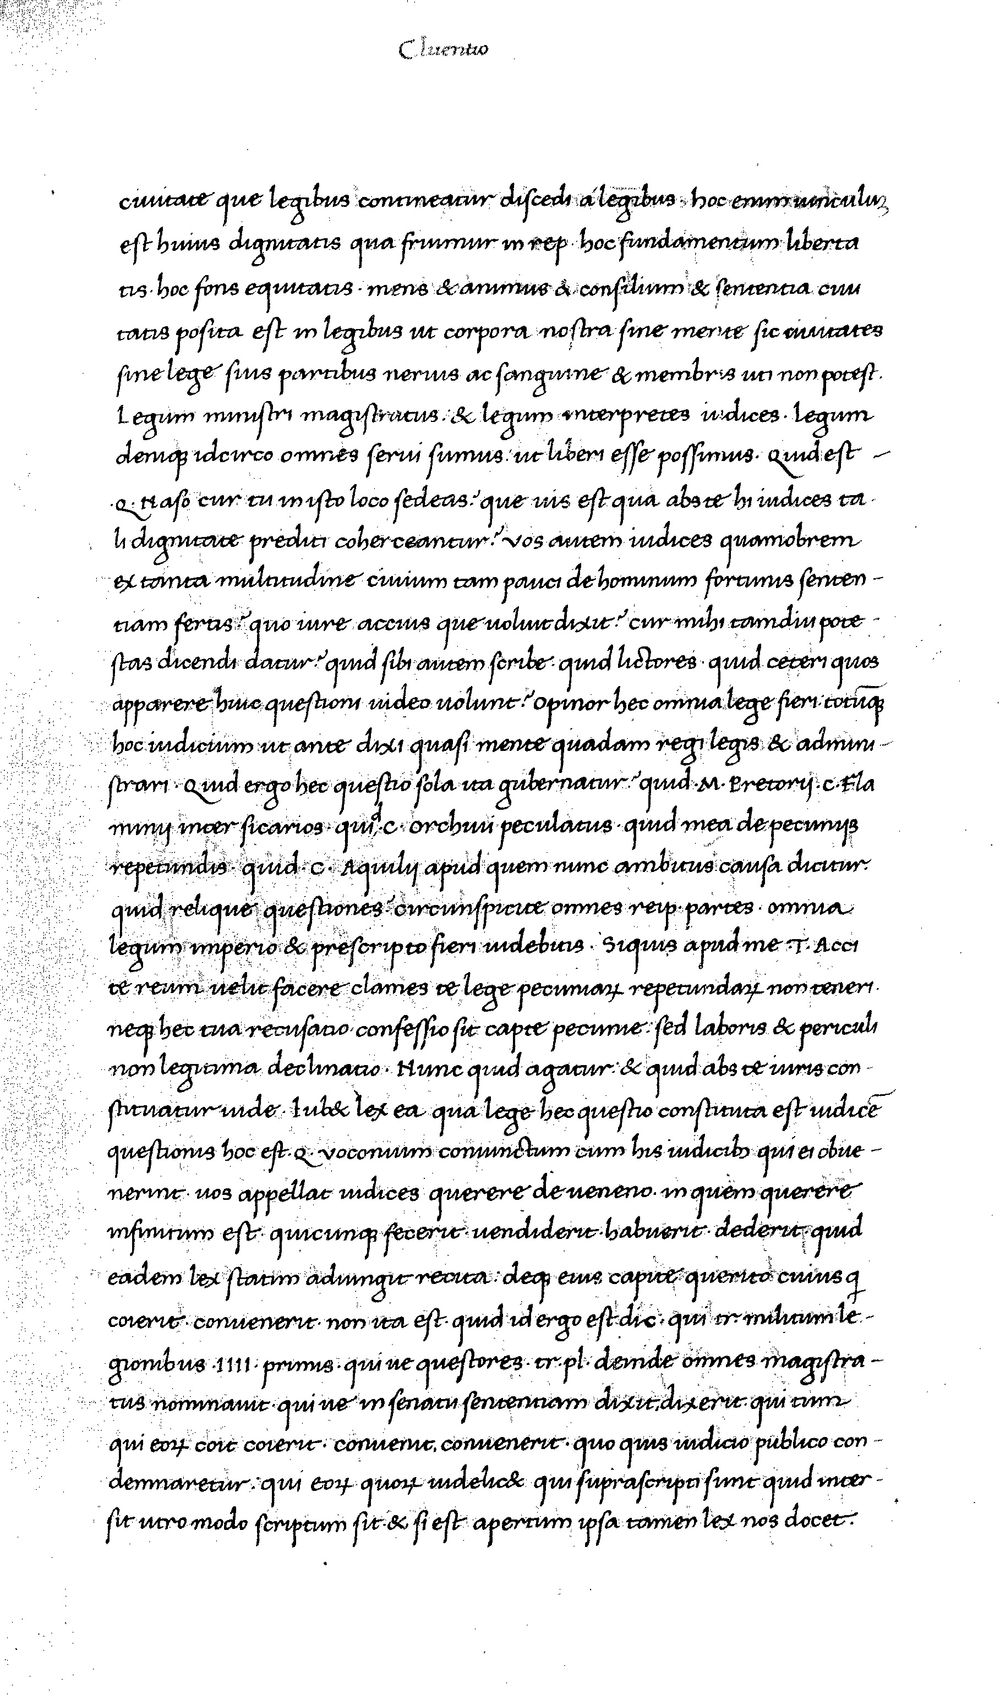 Cluentio
ciuitate que legibus contineatur discedi a legibus · hoc enim uinculuʒ
est huius dignitatis qua fruimur in rep · hoc fundamentum liberta
tis · hoc fons equitatis · mens & animus & consilium & sententia ciui
tatis posita est in legibus ut corpora nostra sine mente sic ciuitates
sine lege suis partibus neruis ac sanguine & membris uti non potest .
Legum ministri magistratus . & legum interpretes iudices · legum
deniqꝫ idcirco omnes serui sumus : ut liberi esse possimus · Quid est –
·Q· Naso cur tu in isto loco sedeas ? que uis est qua abs te hi iudices ta -
li dignitate prediti coherceantur ? Vos autem iudices quamobrem
ex tanta multitudine ciuium tam pauci de hominum fortunis senten -
tiam fertis ? quo iure accius que uoluit dixit ? cur mihi tamdiu pote -
stas dicendi datur ? quid sibi autem scribe · quid lictores · quid ceteri quos
apparere huic questioni uideo uolunt ? Opinor hec omnia lege fieri totūqꝫ
hoc iudicium ut ante dixi quasi mente quadam regi legis & admini -
strari · Quid ergo hec questio sola ita gubernatur ? quid · M · Pretorij · C · Fla
minij inter sicarios · qui^d C · Orchiui peculatus · quid mea de pecunijs
repetundis · quid · C · Aquilij apud quem nunc ambitus causa dicitur .
quid relique questiones ? circunspicite omnes reip · partes · omnia
legum imperio & prescripto fieri uidebitis · Siquis apud me · T · Acci
te reum uelit facere clames te lege pecuniaꝝ repetundaꝝ non teneri .
neqꝫ hec tua recusatio confessio sit capte pecunie : sed laboris & periculi
non legitima declinatio · Nunc quid agatur & quid abs te iuris con -
stituatur uide · Iub& lex ea qua lege hec questio constituta est iudicē
questionis hoc est · Q · Voconium coniunctum cum his iudicibꝫ qui ei obue –
nerint · uos appellat iudices querere de ueneno · in quem querere
infinitum est · quicunqꝫ fecerit · uendiderit · habuerit · dederit · quid
eadem lex statim adiungit recita : deqꝫ eius capite querito cuiusqꝫ
coierit · conuenerit · non ita est · quid id ergo est dic · qui tr · militum le -
gionibus · IIII · primis · qui ue questores · tr · pl · deinde omnes magistra –
tus nominauit · qui ue in senatu sententiam dixit, dixerit · qui tum
qui eoꝝ coit coierit · conuenit, conuenerit · quo quis iudicio publico con –
demnaretur : qui eoꝝ quoꝝ uidelic& qui suprascripti sunt quid inter -
sit utro modo scriptum sit & si est apertum ipsa tamen lex nos docet .